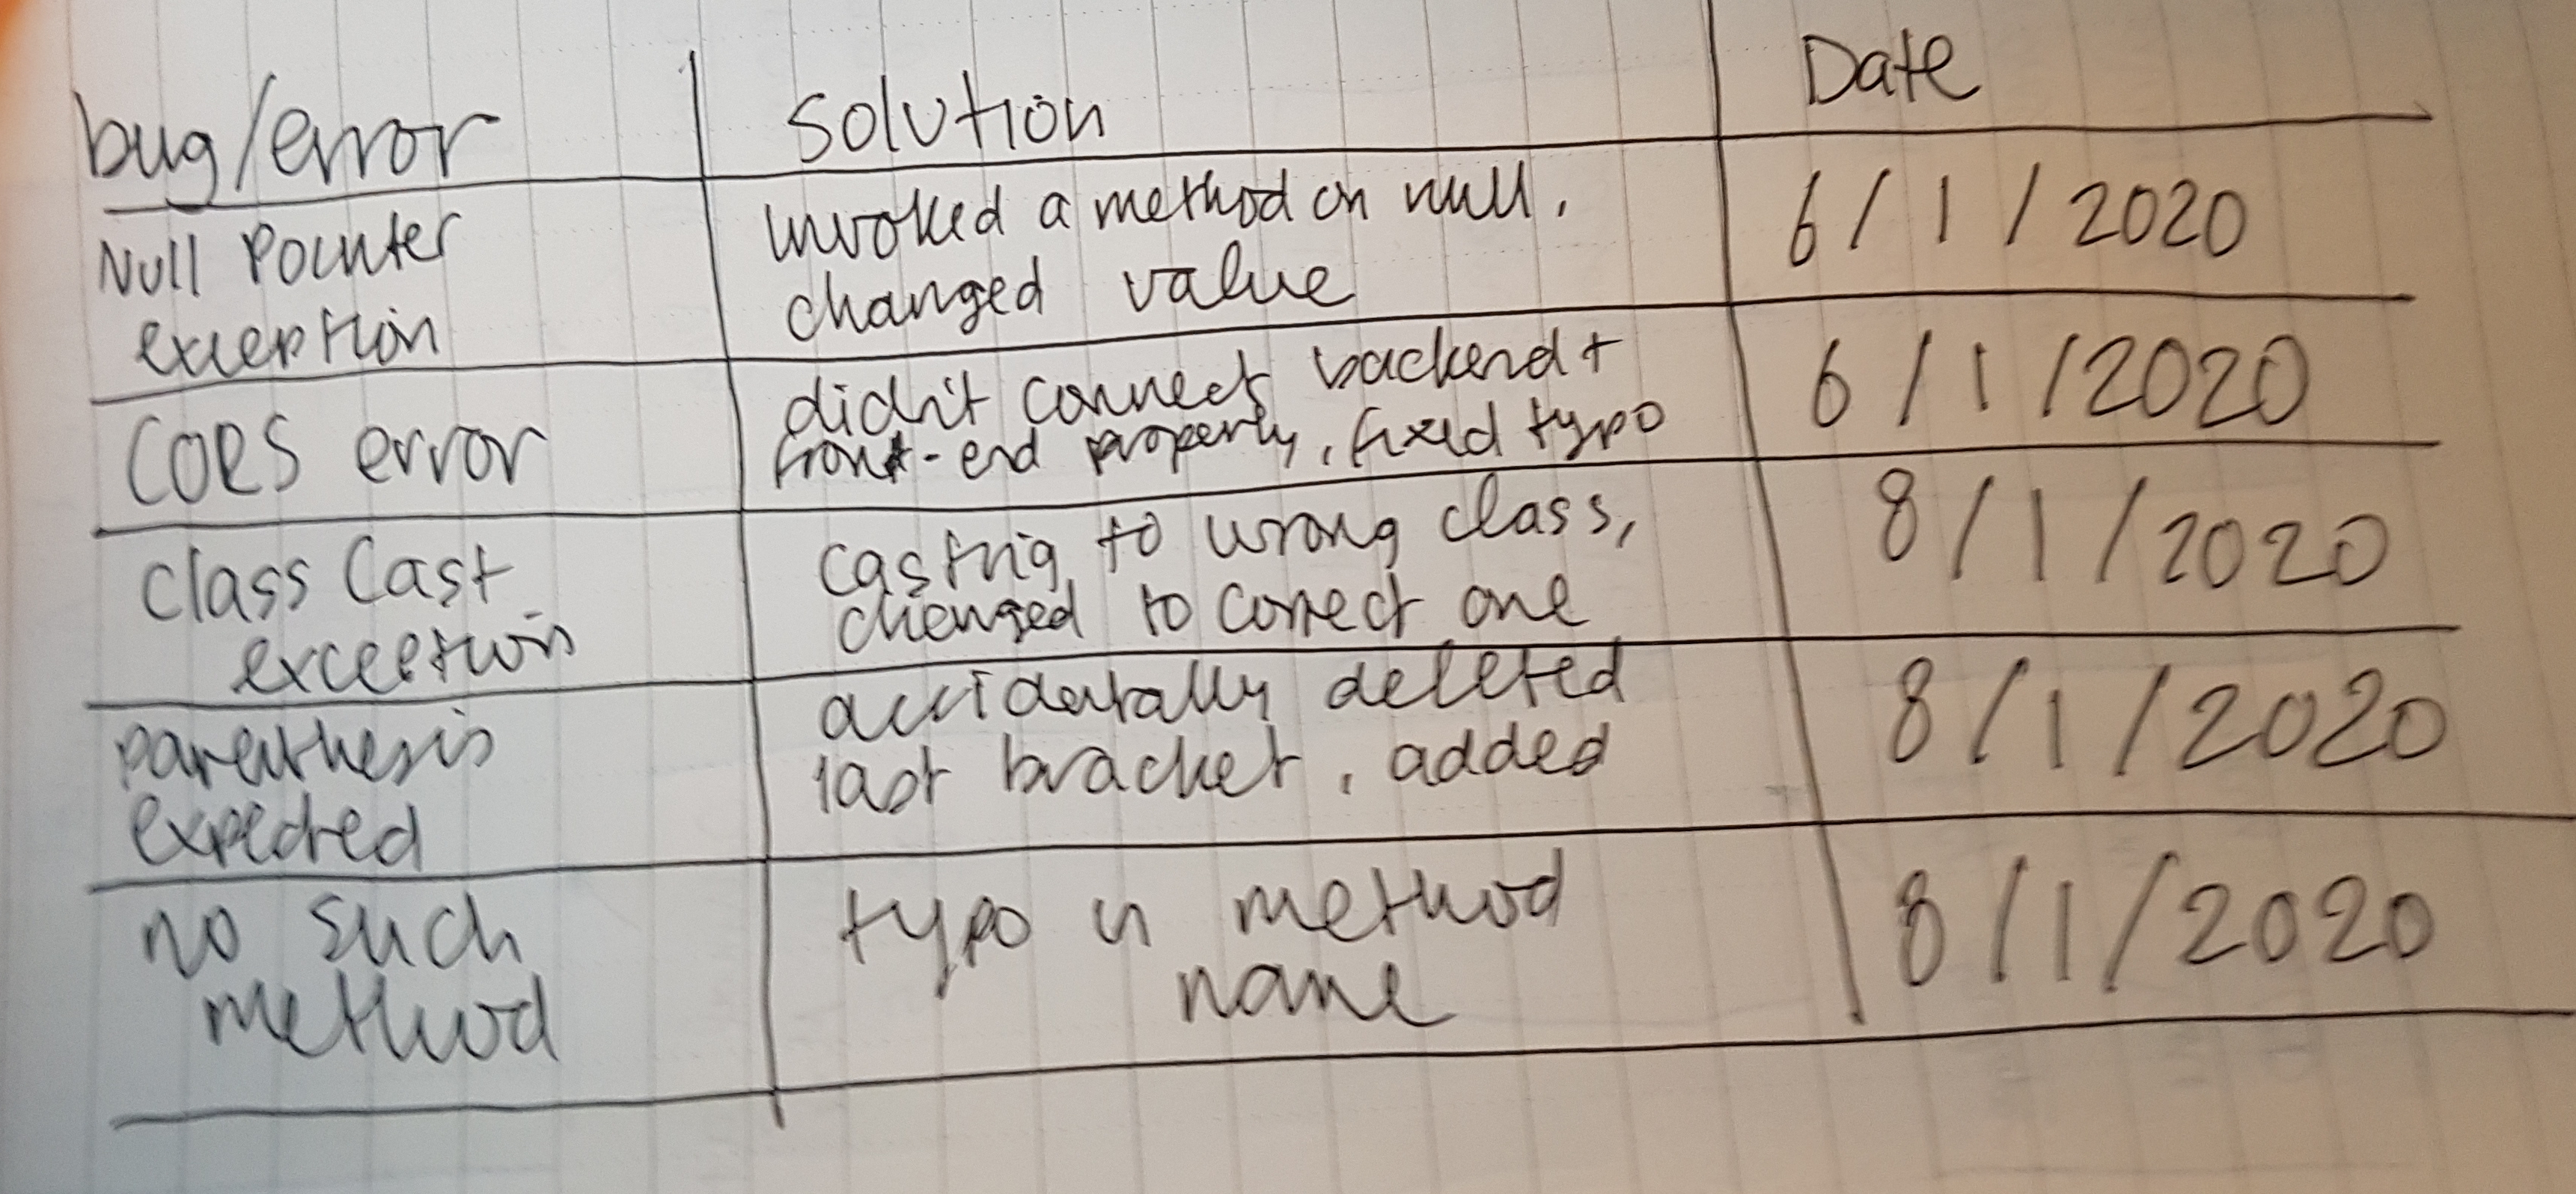 bug/error
Solution
Date
Null Pointer
exception
invoked a method on null.
changed value
6/1/2020
CORS error
didn't connect backend +
front-end properly, fixed typo
6/1/2020
Class Cast
exception
casting to wrong class,
changed to correct one
8/1/2020
parenthesis
expected
accidentally deleted
last bracket, added
8/1/2020
no such
method
typo in method
name
8/1/2020